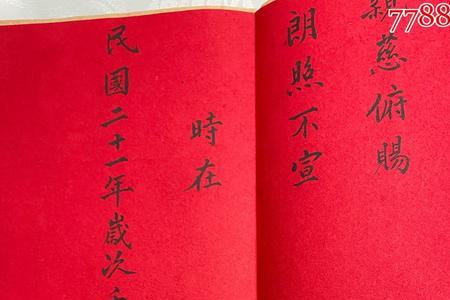 親慈俯賜
朗照不宣
時在
民國二十一年歲次
7788